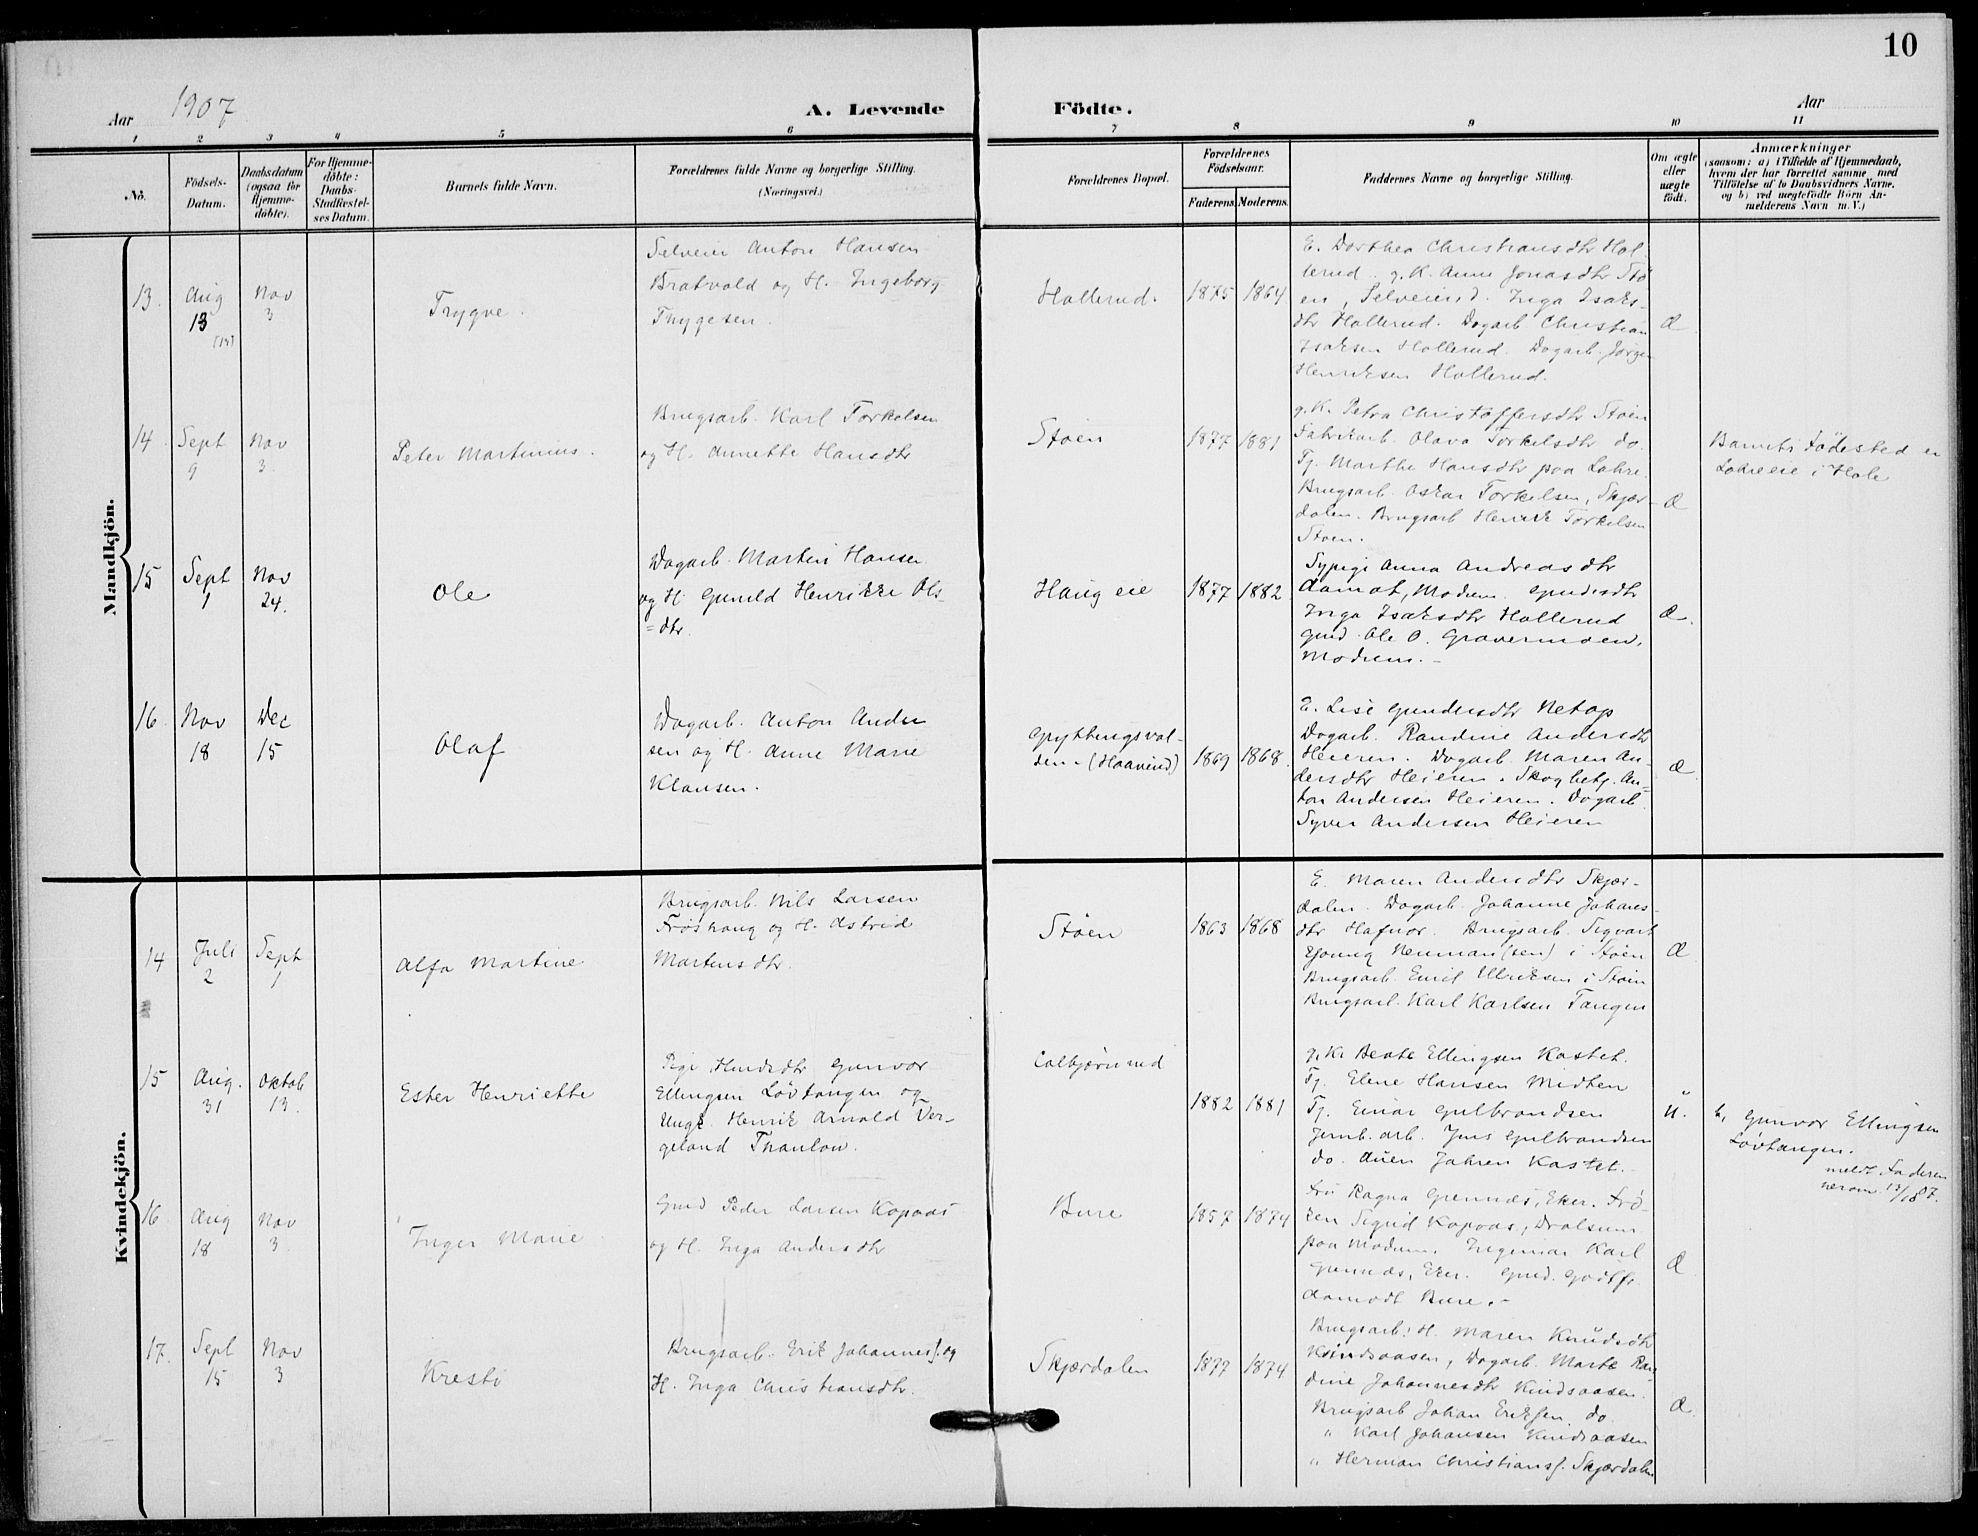 10
Aar 1907
A. Levende Födte.
Aar
1 2 3 4 5 6 7 8 9 10 11
No.
Födsels-
Datum.
Daabsdatum
(ogsaa for
Hjemme-
döbte).
For Hjemme-
döbte:
Daabs-
Stadfæstel-
ses Datum.
Barnets fulde Navn.
Forældrenes fulde Navne og borgerlige Stilling.
(Næringsvei.)
Forældrenes Bopæl.
Forældrenes
Födselsaar.
Faderens. Moderens.
Faddernes Navne og borgerlige Stilling.
Om ægte
eller
uægte
födt.
Anmærkninger
(saasom: a) i Tilfælde af Hjemmedaab,
hvem der har forrettet samme, med
Tilföielse af to Daabsvidners Navne,
og b) ved uægtefödte Börn An-
melderens Navn m. V.)
Mandkjön.
13.
Aug
13
Nov
3
Trygve.
Selveier Anton Hansen
Bratvold og H. Ingeborg
Thygesen.
Hollerud.
1875 1864
E. Dorthea Christiansdtr Hol-
lerud. g.K. Anne Jonasdtr Stø-
en, Selveierd. Inga Isaks-
dtr Hollerud. Dagarb. Christian
Isaksen Hollerud. Dagarb. Jørgen
Henriksen Hollerud.
Æ
14
Sept
9
Nov
3.
Peter Martinius.
Brugsarb. Karl Torkelsen
og H. Annette Hansdtr
Støen
1877 1881
g.K. Petra Christoffersdtr Støen
Fabrikarb. Olava Torkelsdtr do.
Tj. Marthe Hansdtr paa Lohre.
Brugsarb. Oskar Torkelsen, Skjær-
dalen. Brugsarb Henrik Torkelsen
Støen.
Æ
Barnets Fødested er
Lohreeie i Hole
15
Sept
1
Nov
24.
Ole
Dagarb. Martin Hansen
og H. Gunild Henrikke Ols-
=dtr.
Haug eie
1877 1882
Sypige Anna Andreasdtr
Aamot, Modum. Gmdsdtr
Inga Isaksdtr Hollerud
Gmd. Ole O. Gravermoen,
Modum.-
Æ.
16.
Nov
18
Dec
15
Olaf
Dagarb. Anton Ander
sen og H. Anne Marie
Klausen.
Gryttingsval-
den-(Haaveind)
1869 1868.
E. Lise Gundersdtr Netop
Dagarb. Randine Andersdtr
Heieren. Dagarb. Maren An-
dersdtr Heieren. Skogbetj. An-
ton Andersen Heieren. Dagarb.
Syver Andersen Heieren
Æ
Kvindekjön.
14
Juli
2
Sept
1
Alfa Martine
Brugsarb. Nils Larsen
Frøshaug og H. Astrid
Martensdtr.
Støen
1863 1868
E. Maren Andersdtr Skjær-
dalen. Dagarb. Johanne Johans-
dtr Hafnor. Brugsarb. Sigvart
Neuman(sen) i Støen
Brugsarb. Emil Ulriksen i Støen
Brugsarb. Karl Karlsen Tangen
Æ
15
Aug.
31
Oktob
13.
Ester Henriette
Pige Gunvor
Ellingsen Løvtangen og
Ungk. Henrik Arnold Ver-
geland Thaulow.
Colbjørnrud
1882 1881
g.K. Beate Ellingsen Kastet.
Tj. Elene Hansen Midten
Tj. Einar Gulbrandsen
Jernb. arb. Jens Gulbrandsen
do. Auen Jahren Kastet.
U.
b, Gunvor Ellingsen
Løvtangen.
meldt Faderen
herom
16.
Aug
18
Nov
3.
Inger Marie
Gmd Peder Larsen Kopaas
og H. Inga Andersdtr
Bure
1857 1874
Fru Ragna Grennæs, Eker. Frø-
ken Sigrid Kopaas, Dralsum
paa Modum. Ingeniør Karl
Grennæs, Eker. Gmd. Godtfr.
Aamodt Bure.-
Æ
17.
Sept
15
Nov
3
Kresti
Brugsarb. Erik Johannes. og
H. Inga Christiansdtr.
Skjærdalen
1877 1874
Brugsarb. H. Maren Knudsdtr
Kindsaasen, Dagarb. Marte Ran
dine Johannesdtr Kindsaasen.
Brugsarb Johan Eriksen do.
" Karl Johansen Kindsaasen
" Herman Christians. Skjærdalen
Æ